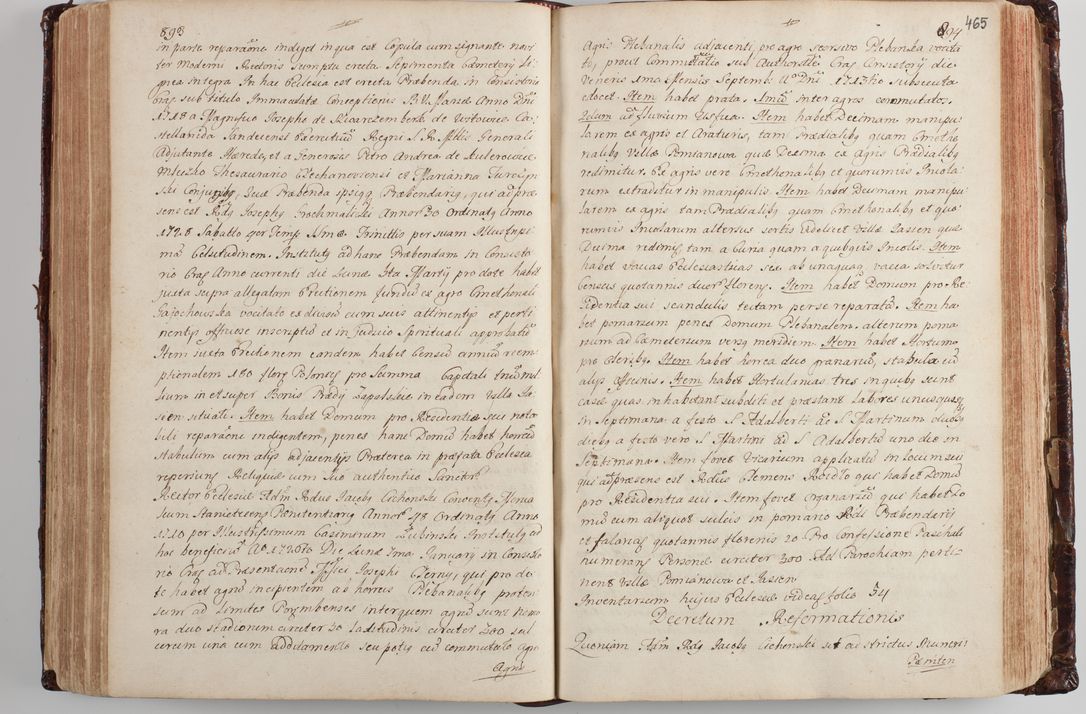 893
in parte reparaõne indiget in qua est Copula cum signante novi
ter Moderni Rectoris sumptu erecta Sepimenta Cæmeterij li
gnea integra. In hac Ecclesia est erecta Præbenda in Consistorio
Crac sub titulo Immaculatæ Conceptionis B.V. Mariæ Anno Dñi
1718 a Magnifico Josepho de
Castellanida Sandecensi Exercituũ Regni S. R. Mttis Generali
Adjutante Hærede, et a Generosis Petro Andrea de
Thesaurario Ciechanoviensi et Marianna
ski Conjugibq, Seu Præbenda Præbendarig, qui ad præ
sens est Rdg Josephg Annor 30 Ordinatg Anno
1728 Sabatto qor Temp SSmæ Trinittis per suam Illustrissi
mã Celsitudinem. Institutg ad hanc Præbendam in Consisto
rio Crac Anno currenti die Lunæ 5ta Martij pro dote habet
juxta supra allegatam Erectionem fundũ ex agro Cmethonali
vocitato ex diviso cum suis attinentijs et perti
nentijs Officiose inscriptũ et in judicio Spirituali approbatũ
Item juxta Erectionem eandem habet Censũ annuũ reem
ptionalem 180 flor Polonic pro Summa Capitali trium mil
lium in et super Bonis Prædij in eadem Villa Ja
sien situati. Item habet Domum pro Residentia seu nota
bili reparaõne indigentem, penes hanc Domũ habet horreũ
stabulum cum alijs adjacentijs Præterea in præfata Ecclesia
reperiunt Reliquiæ cum suo authentico Sanctor
Rector Ecclesiæ Adm Rdus Jacobg Cichonski Conventg
sum Pænitentiarg Annor 48 Ordinatg Anno
1710 per Illustrissimum Casimirum Łubinski Institutg ad
hoc beneficiũ Aõ 1720to Die Lunæ 1ma January in Consisto
rio Crac ad Præsentaõnẽ Josephi Czerny, qui pro do
te habet agrũ incipientem ab horreis Plebanalibg proten
sum ad Limites Porembenses inter quem agrũ sunt nemo
ra duo stadionum circiter 30 Latitudinis circiter 300 sul
corum una cum Additamento seu potig cũ commutato agro
Agris

894
465
Agris Plebanalis adjacenti, pro agro seorsivo Plebanska vocita
to, prout Commutatio sub Authoritte Crac Consistorij die
Veneris 1ma Mensis Septemb Aõ Dñi 1713tio Subsecuta
docet. Item habet prata, 1mũ inter agros commutatos,
2dum ad fluvium Item habet Decimam manipu
larem ex agris et Araturis, tam Prædialibg quam Cmetho
nalibg Villæ Pomianowa quæ Decima ex agris Prædialibg
redimitur. Ex agris vero Cmethonalibg et quorumvis Incola
rum extraditur in manipulis Item habet Decimam manipu
larem ex agris tam Prædialibg quam Cmethonalibg et quo
rumvis Incolarum alterius sortis videlicet Villæ Jasien quæ
Decima redimit, tam a Curia quam a quibusvis Incolis. Item
habet vaccas Ecclesiasticas seu ab unaquaq vacca solvitur
Census quotannis duor florenr. Item habet Domum pro Re
sidentia sui scandulis tectam per se reparatã. Item ha
bet pomarium penes Domum Plebanalem, alterum poma
rium ad Cæmeterium versg meridiem. Item habet Hortum
pro Oleribg. Item habet horrea duo granariũ, stabula cũ
alijs officinis. Item habet Hortulanias tres in quibg sunt
casæ quas inhabitant subditi et præstant labores unusquisq
in Septimana a festo S. Adalberti ad S. Martinum duobg
diebg a festo vero S. Martini ad S. Adalbertũ uno die in
Septimana. Item fovet Vicarium applicatũ in locum sui
qui ad præsens est Rdus Clemens qui habet Domũ
pro Residentia sui. Item fovet Organariũ qui habet Do
mũ cum aliquot sulcis in pomario Rdi Præbendarij
et salariat quotannis florenis 20 Pro Confessione Paschali
numerant Personæ circiter 300. Ad Parochiam perti
nent Villæ Pomianowa et Jasien
Inventarium hujus Ecclesiæ videas folio 54
Decretum Reformationis
Quoniam Adm Rdg Jacobg Cichonski sit adstrictus Muneri
Pæniten